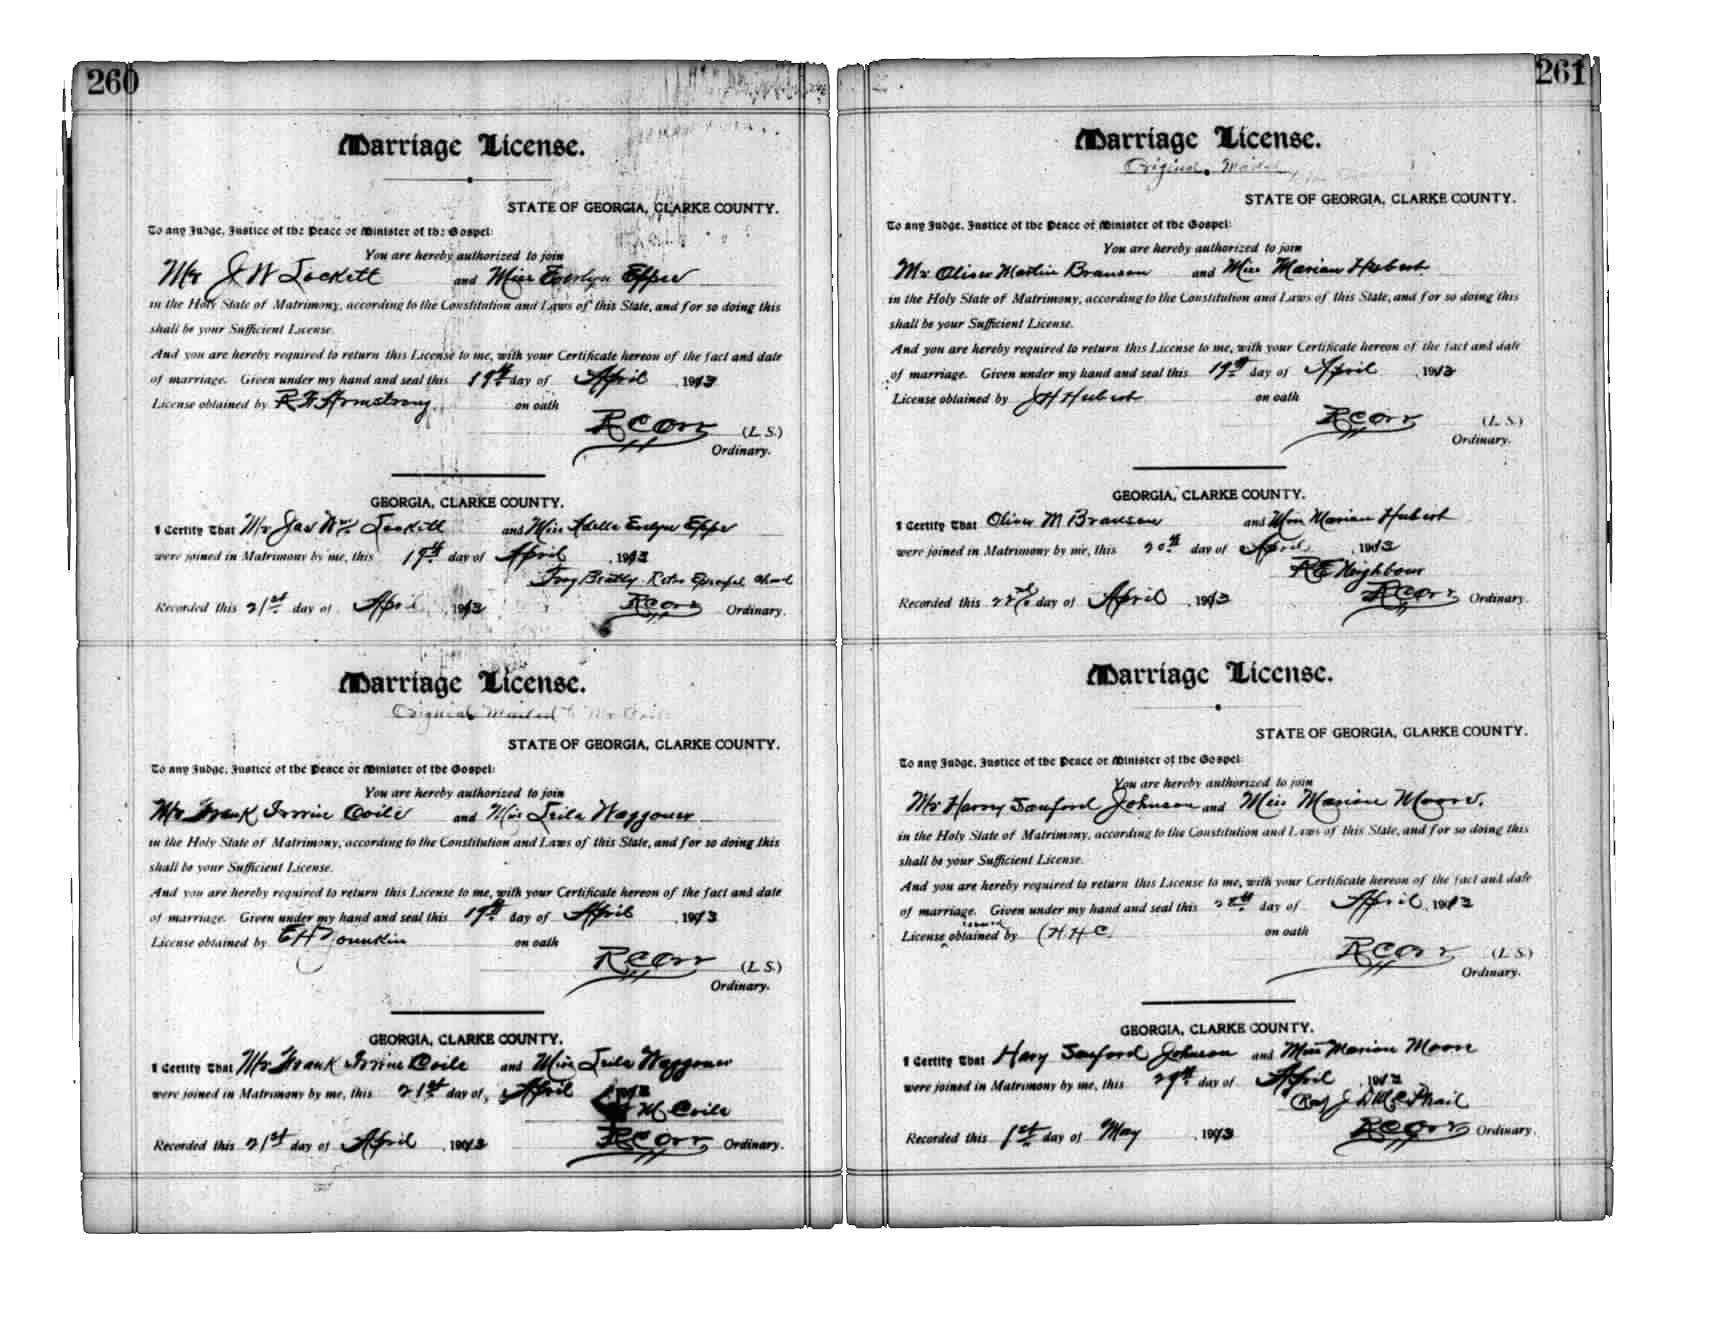 260
Marriage License.
STATE OF GEORGIA, CLARKE COUNTY.
To any Judge, Justice of the Peace or Minister of the Gospel:
You are hereby authorized to join
Mr J W Lockett and Miss Evelyn Epps
in the Holy State of Matrimony, according to the Constitution and Laws of this State, and for so doing this
shall be your Sufficient License.
And you are hereby required to return this License to me, with your Certificate hereon of the fact and date
of marriage. Given under my hand and seal this 19th day of April, 1913
License obtained by R F Armstrong on oath
R C Orr (L. S.)
Ordinary.
GEORGIA, CLARKE COUNTY.
I Certify That Mr Jas Wm Lockett and Miss Adelle Evelyn Epps
were joined in Matrimony by me, this 19th day of April, 1913
Troy Beatty Church
Recorded this 21st day of April, 1913 R C Orr Ordinary.
Marriage License.
Original Mailed to Mr Coile
STATE OF GEORGIA, CLARKE COUNTY.
To any Judge, Justice of the Peace or Minister of the Gospel:
You are hereby authorized to join
Mr Frank Irvine Coile and Miss Leila Waggoner
in the Holy State of Matrimony, according to the Constitution and Laws of this State, and for so doing this
shall be your Sufficient License.
And you are hereby required to return this License to me, with your Certificate hereon of the fact and date
of marriage. Given under my hand and seal this 19th day of April, 1913
License obtained by E H Dounkin on oath
R C Orr (L. S.)
Ordinary.
GEORGIA, CLARKE COUNTY.
I Certify That Mr Frank Irvine Coile and Miss Leila Waggoner
were joined in Matrimony by me, this 21st day of, April 1913
M Coile
Recorded this 21st day of April, 1913 R C Orr Ordinary.
261
Marriage License.
Original Mailed
STATE OF GEORGIA, CLARKE COUNTY.
To any Judge, Justice of the Peace or Minister of the Gospel:
You are hereby authorized to join
Mr Oliver Martin Branson and Miss Marian Hubert
in the Holy State of Matrimony, according to the Constitution and Laws of this State, and for so doing this
shall be your Sufficient License.
And you are hereby required to return this License to me, with your Certificate hereon of the fact and date
of marriage. Given under my hand and seal this 19th day of April, 1913
License obtained by J H Hubert on oath
R C Orr (L. S.)
Ordinary.
GEORGIA, CLARKE COUNTY.
I Certify That Oliver M Branson and Miss Marian Hubert
were joined in Matrimony by me, this 20th day of April, 1913
R E Neighbour
Recorded this 22nd day of April, 1913 R C Orr Ordinary.
Marriage License.
STATE OF GEORGIA, CLARKE COUNTY.
To any Judge, Justice of the Peace or Minister of the Gospel:
You are hereby authorized to join
Mr Harry Sanford Johnson and Miss Marion Moore.
in the Holy State of Matrimony, according to the Constitution and Laws of this State, and for so doing this
shall be your Sufficient License.
And you are hereby required to return this License to me, with your Certificate hereon of the fact and date
of marriage. Given under my hand and seal this 28th day of April, 1913
License obtained by (H. H. C.) on oath
R C Orr (L. S.)
Ordinary.
GEORGIA, CLARKE COUNTY.
I Certify That Hary Sanford Johnson and Miss Marion Moore
were joined in Matrimony by me, this 29th day of April, 1913
Rev J D McPhail
Recorded this 1st day of May, 1913 R C Orr Ordinary.